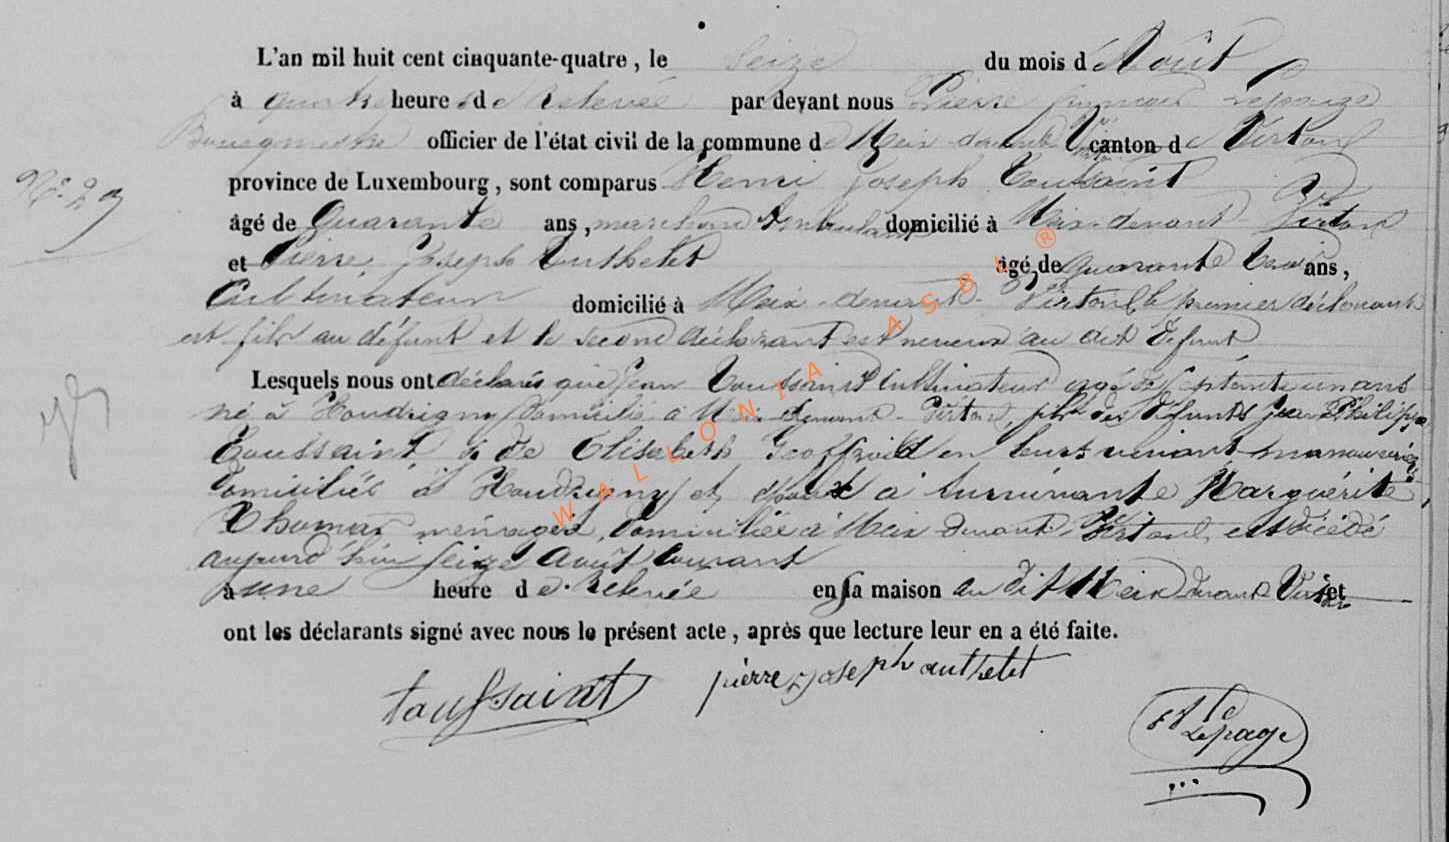 L'an mil huit cent cinquante-quatre, le seize du mois d'Août
à quatre heures de Relevée par devant nous Pierre françois Lepage
Bourgmestre officier de l'état civil de la commune de Meix devant Virton canton de Virton
province de Luxembourg, sont comparus Henri Joseph Toussaint
âgé de Quarante ans, marchand Ambulant domicilié à Meix-devant Virton
et Pierre Joseph Authelet âgé de Quarante trois ans,
Cultivateur domicilié à Meix-devant-Virton, le premier déclarant
est fils au défunt et le second déclarant est neveux au dit défunt
Lesquels nous ont déclarés que Jean Toussaint Cultivateur agé de septante un ans
né à Houdrigny domicilié à Meix devant-Virton, fils des défunts Jean Philippe
Toussaint, & de Elisabeth Geoffroid en leurs vivant manouvriés
domiciliés à Houdrigny et époux à survivante Marguérite
Thomas ménagère, domiciliée à Meix devant Virton, est décédé
aujourd'hui seize Août courant
à une heure de Relevée en sa maison au dit Meix devant Virton et
ont les déclarants signé avec nous le présent acte, après que lecture leur en a été faite.
N° 29
toussaint
pierre joseph authelet
Lepage
WALLONIA ASBL ®